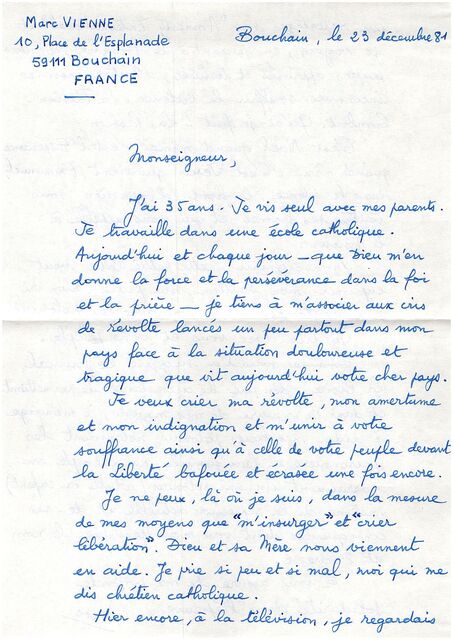 Marc VIENNE
10, Place de l'Esplanade
59111 Bouchain
FRANCE
Bouchain, le 23 décembre 81
Monseigneur,
J'ai 35 ans. Je vis seul avec mes parents.
Je travaille dans une école catholique.
Aujourd'hui et chaque jour – que Dieu m'en
donne la force et la persévérance dans la foi
et la prière – je tiens à m'associer aux cris
de révolte lancés un peu partout dans mon
pays face à la situation douloureuse et
tragique que vit aujourd'hui votre cher pays.
Je veux crier ma révolte, mon amertume
et mon indignation et m'unir à votre
souffrance ainsi qu'à celle de votre peuple devant
la Liberté bafouée et écrasée une fois encore.
Je ne peux, là où je suis, dans la mesure
de mes moyens que "m'insurger" et "crier
libération". Dieu et sa Mère nous viennent
en aide. Je prie si peu et si mal, moi qui me
dis chrétien catholique.
Hier encore, à la télévision, je regardais